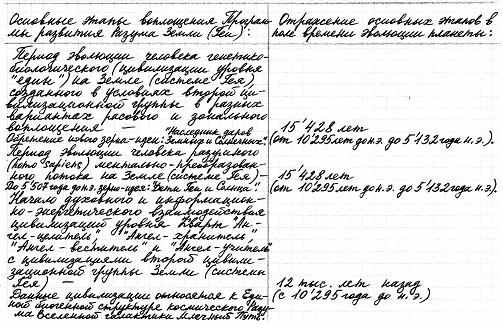 Основные этапы воплощения Програм-
мы развития Разума Земли (Геи):
Отражение основных этапов в
поле времени эволюции планеты:
Период эволюции человека генетико-
биологического (цивилизации уровня
"един") на Земле (системе Гея),
созданного в условиях второй ци-
вилизационной группы в разных
вариантах расового и зонального
воплощения —
"Наследник даров
Обретение нового зерна-идеи: Земного и Солнечного".
15'428 лет
(от 10'295 лет до н.э. до 5'132 года н.э.).
Период эволюции человека разумного
(homo sapiens) ментально-преобразован-
ного потока на Земле (системе Гея) —
До 5'507 года до н.э. зерно-идея: "Дети Геи и Солнца".
15'428 лет
(от 10'295 лет до н.э. до 5'132 года н.э.).
Начало духовного и информацион-
но-энергетического взаимодействия
цивилизаций уровня Кварты "Ан-
гел-целитель", "Ангел-хранитель",
"Ангел-вестник" и "Ангел-учитель"
с цивилизациями второй цивили-
зационной группы Земли (системы
Гея) —
Данные цивилизации относятся к Еди-
ной биогенной структуре космического Разу-
ма Вселенной галактики Млечный Путь.
12 тыс. лет назад
(с 10'295 года до н.э.).